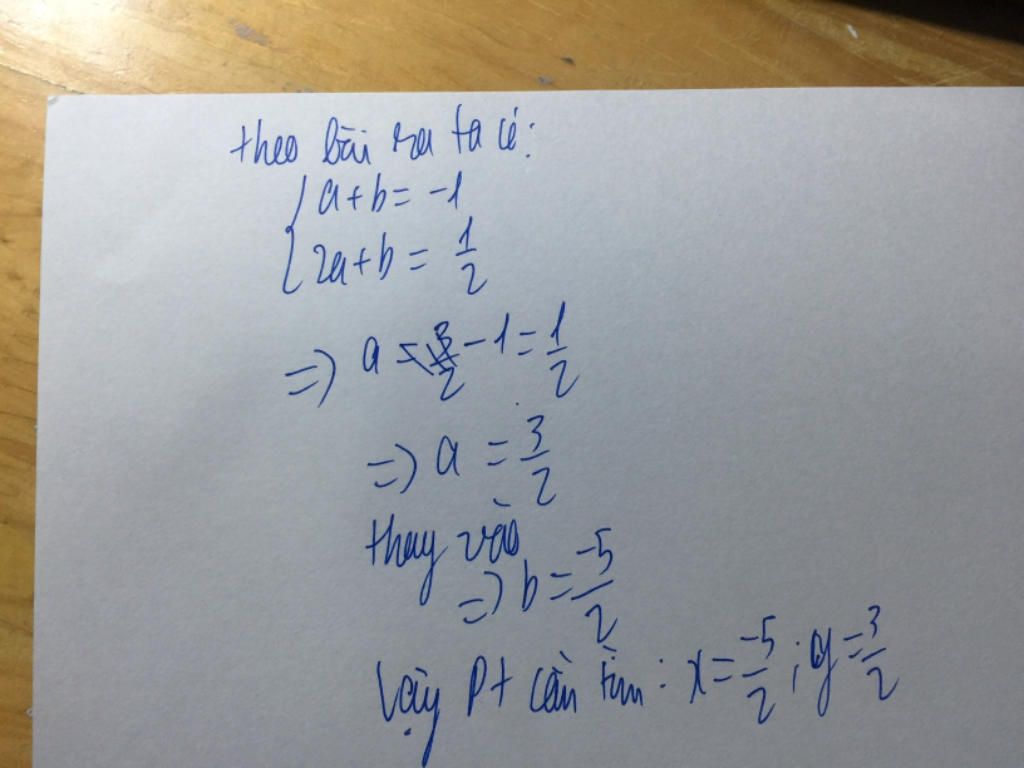 theo bài ra ta có:
{a+b = -1
{2a+b = 1/2
=> a = /2 - 1 = 1/2
=> a = 3/2
thay vào
=> b = -5/2
Vậy Pt cần tìm: x = -5/2; y = 3/2